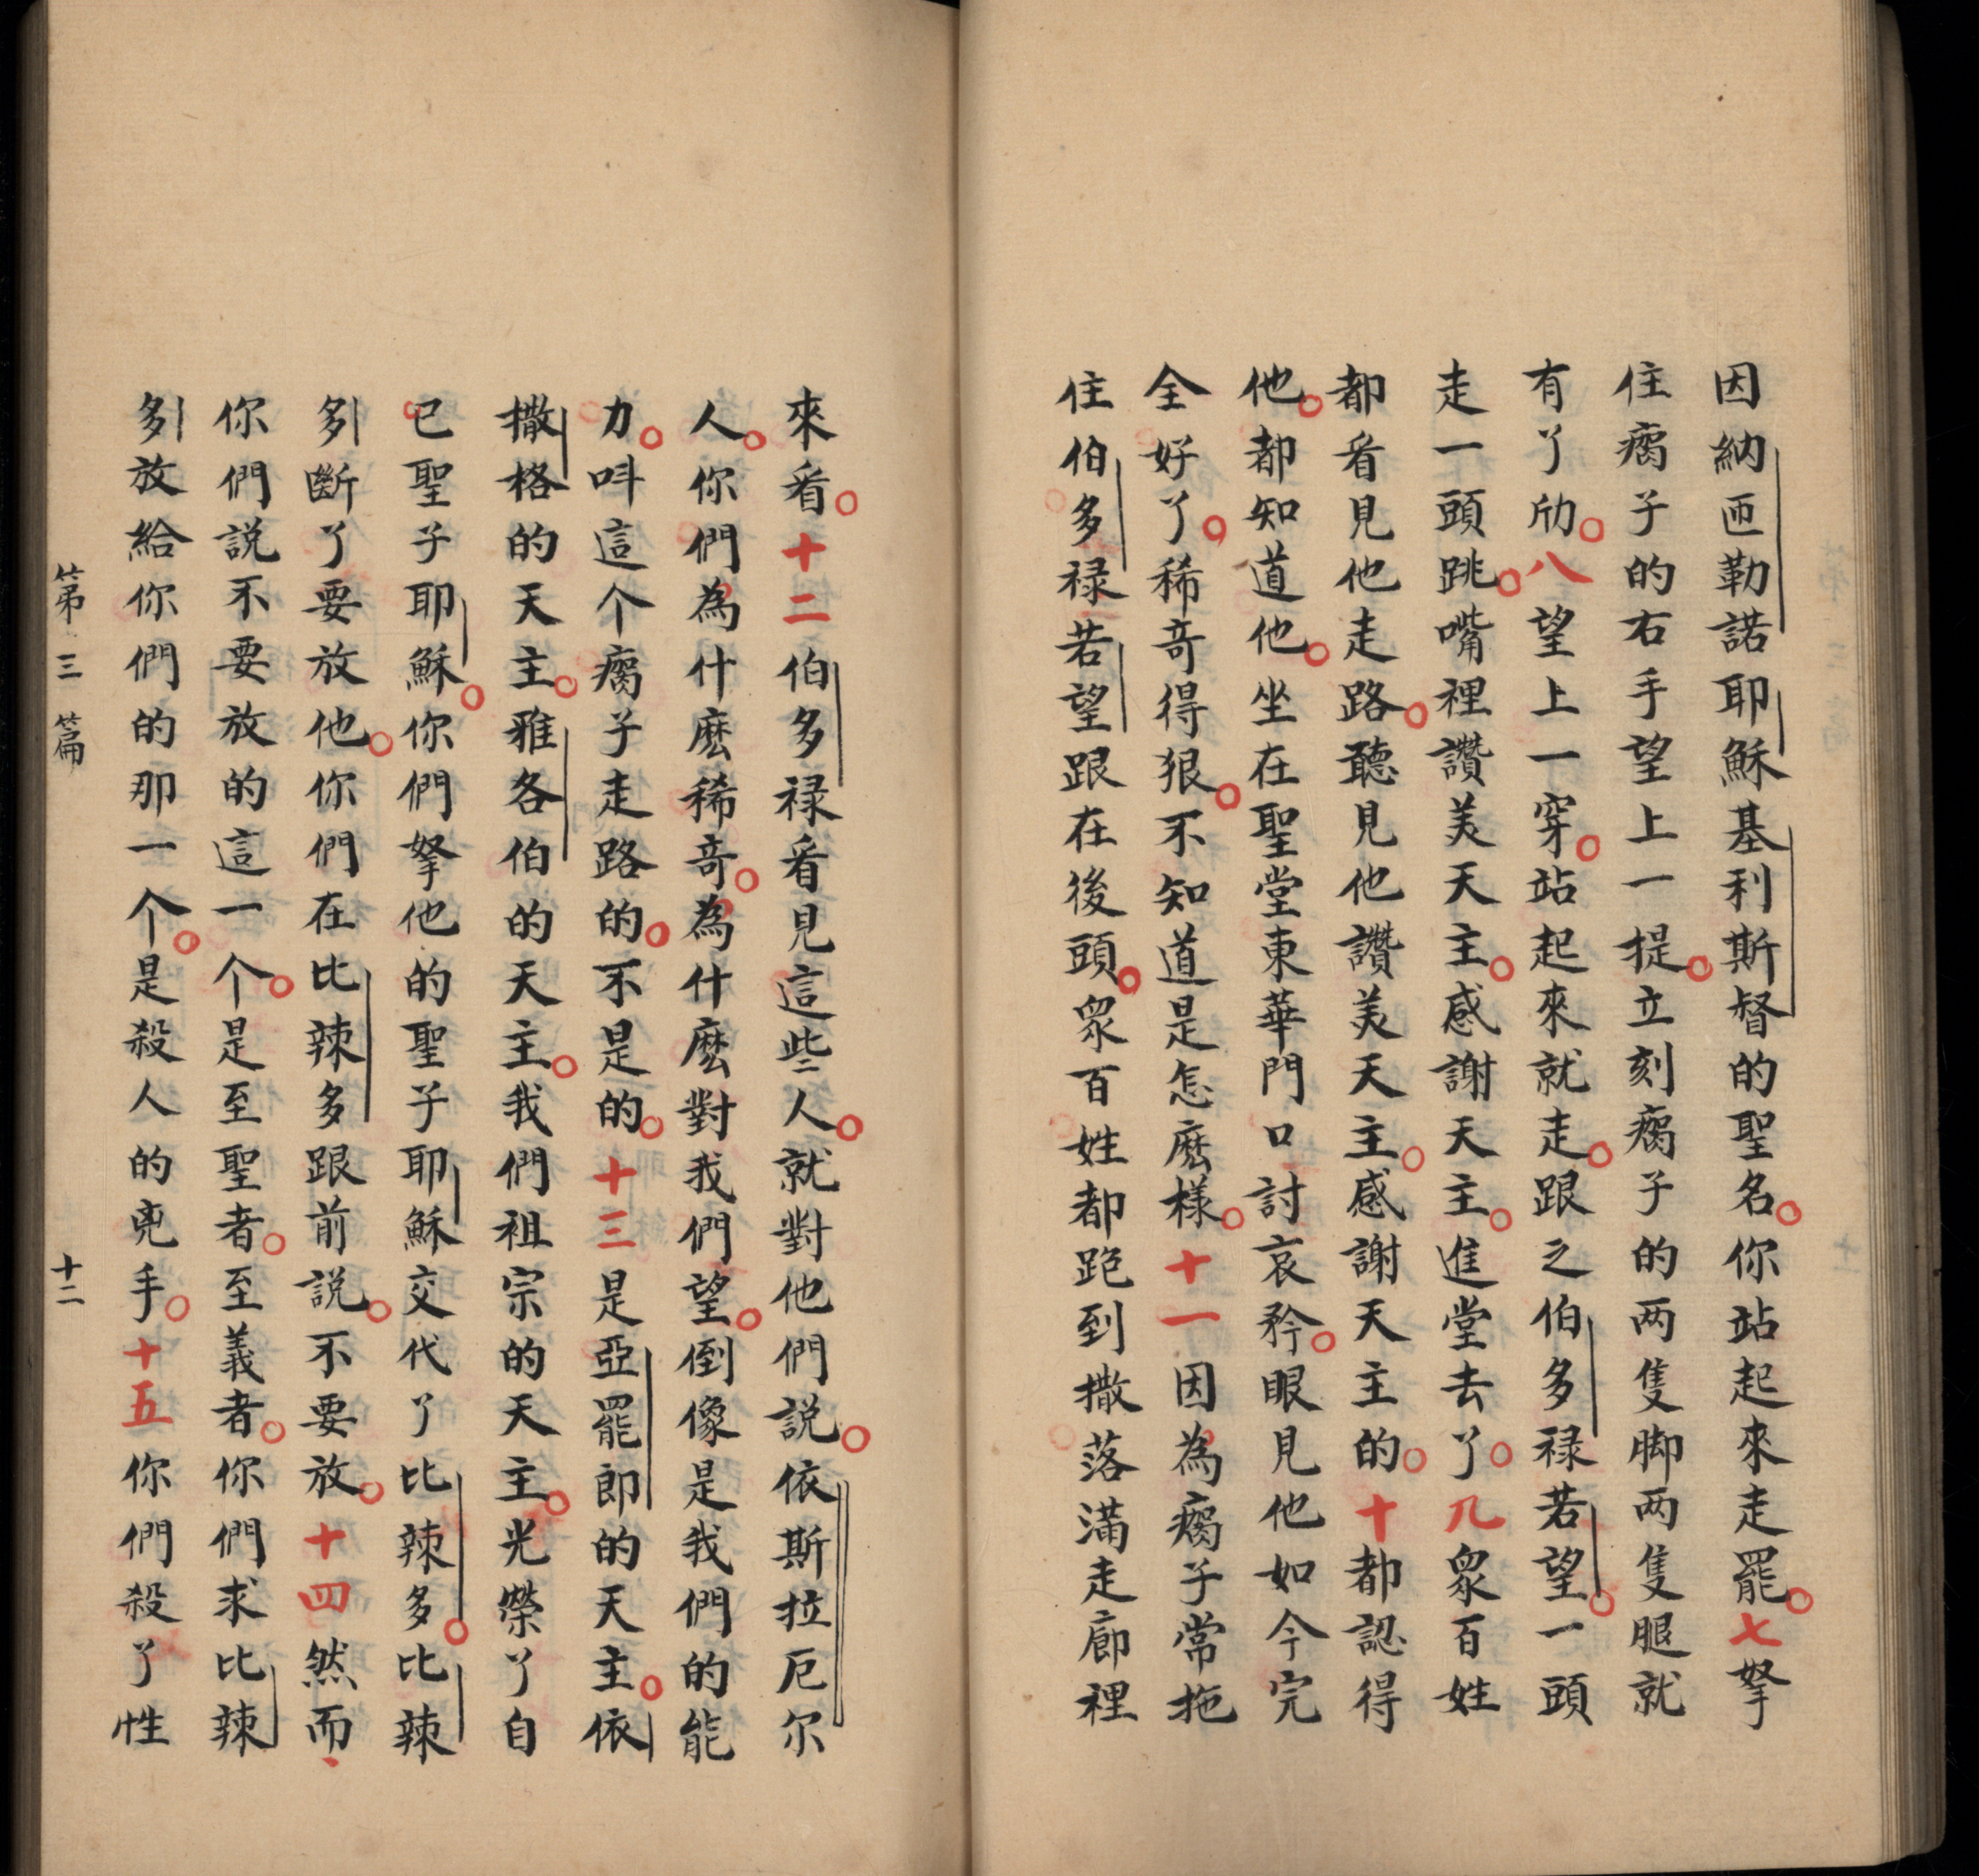 因納匝勒諾耶穌基利斯督的聖名。你站起來走罷。七拏
住瘸子的右手望上一提。立刻瘸子的两隻脚两隻腿就
有了劤。八望上一穿。站起來就走。跟之伯多禄若望。一頭
走一頭跳。嘴裡讚美天主。感謝天主。進堂去了。九衆百姓
都看見他走路。聽見他讚美天主。感謝天主的。十都認得
他。都知道他。坐在聖堂東華門口討哀矜。眼見他如今完
全好了。稀竒得狠。不知道是怎麽樣。十一因為瘸子常拖
住伯多禄若望跟在後頭。衆百姓都跑到撒落满走廊裡
來看。十二伯多禄看見這些人。就對他們説。依斯拉厄尔
人。你們為什麽稀竒。為什麽對我們望。倒像是我們的能
力。呌這个瘸子走路的。不是的。十三是亞罷郎的天主。依
撒格的天主。雅各伯的天主。我們祖宗的天主。光榮了自
已聖子耶穌。你們拏他的聖子耶穌交代了比辣多。比辣
多斷了要放他。你們在比辣多跟前説。不要放。十四然而
你們説不要放的這一个。是至聖者。至義者。你們求比辣
多放給你們的那一个。是殺人的兇手。十五你們殺了性
第三篇 十二